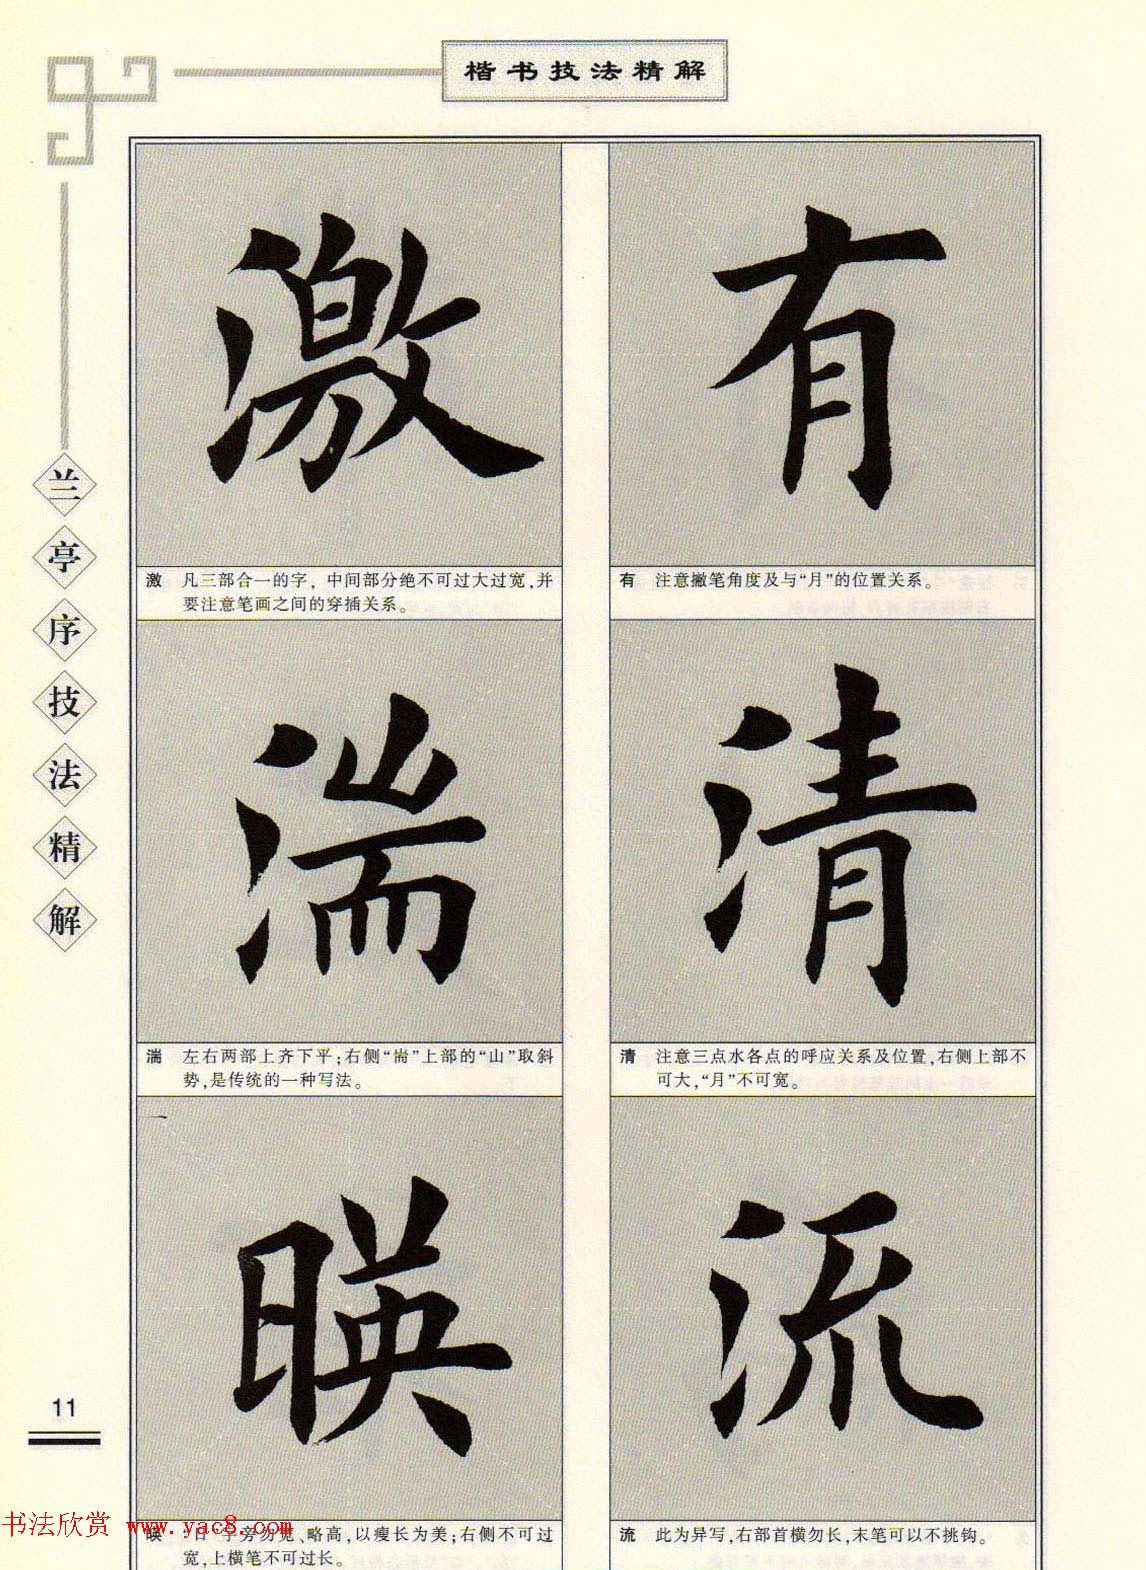 楷书技法精解
兰亭序技法精解
有
有 注意撇笔角度及与“月”的位置关系。
清
清 注意三点水各点的呼应关系及位置,右侧上部不
可大,“月”不可宽。
流
流 此为异写,右部首横勿长,末笔可以不挑钩。
激
激 凡三部合一的字,中间部分绝不可过大过宽,并
要注意笔画之间的穿插关系。
湍
湍 左右两部上齐下平;右侧“耑”上部的“山”取斜
势,是传统的一种写法。
暎
暎 “日”字旁勿宽、略高,以瘦长为美;右侧不可过
宽,上横笔不可过长。
11
书法欣赏 www.yac8.com